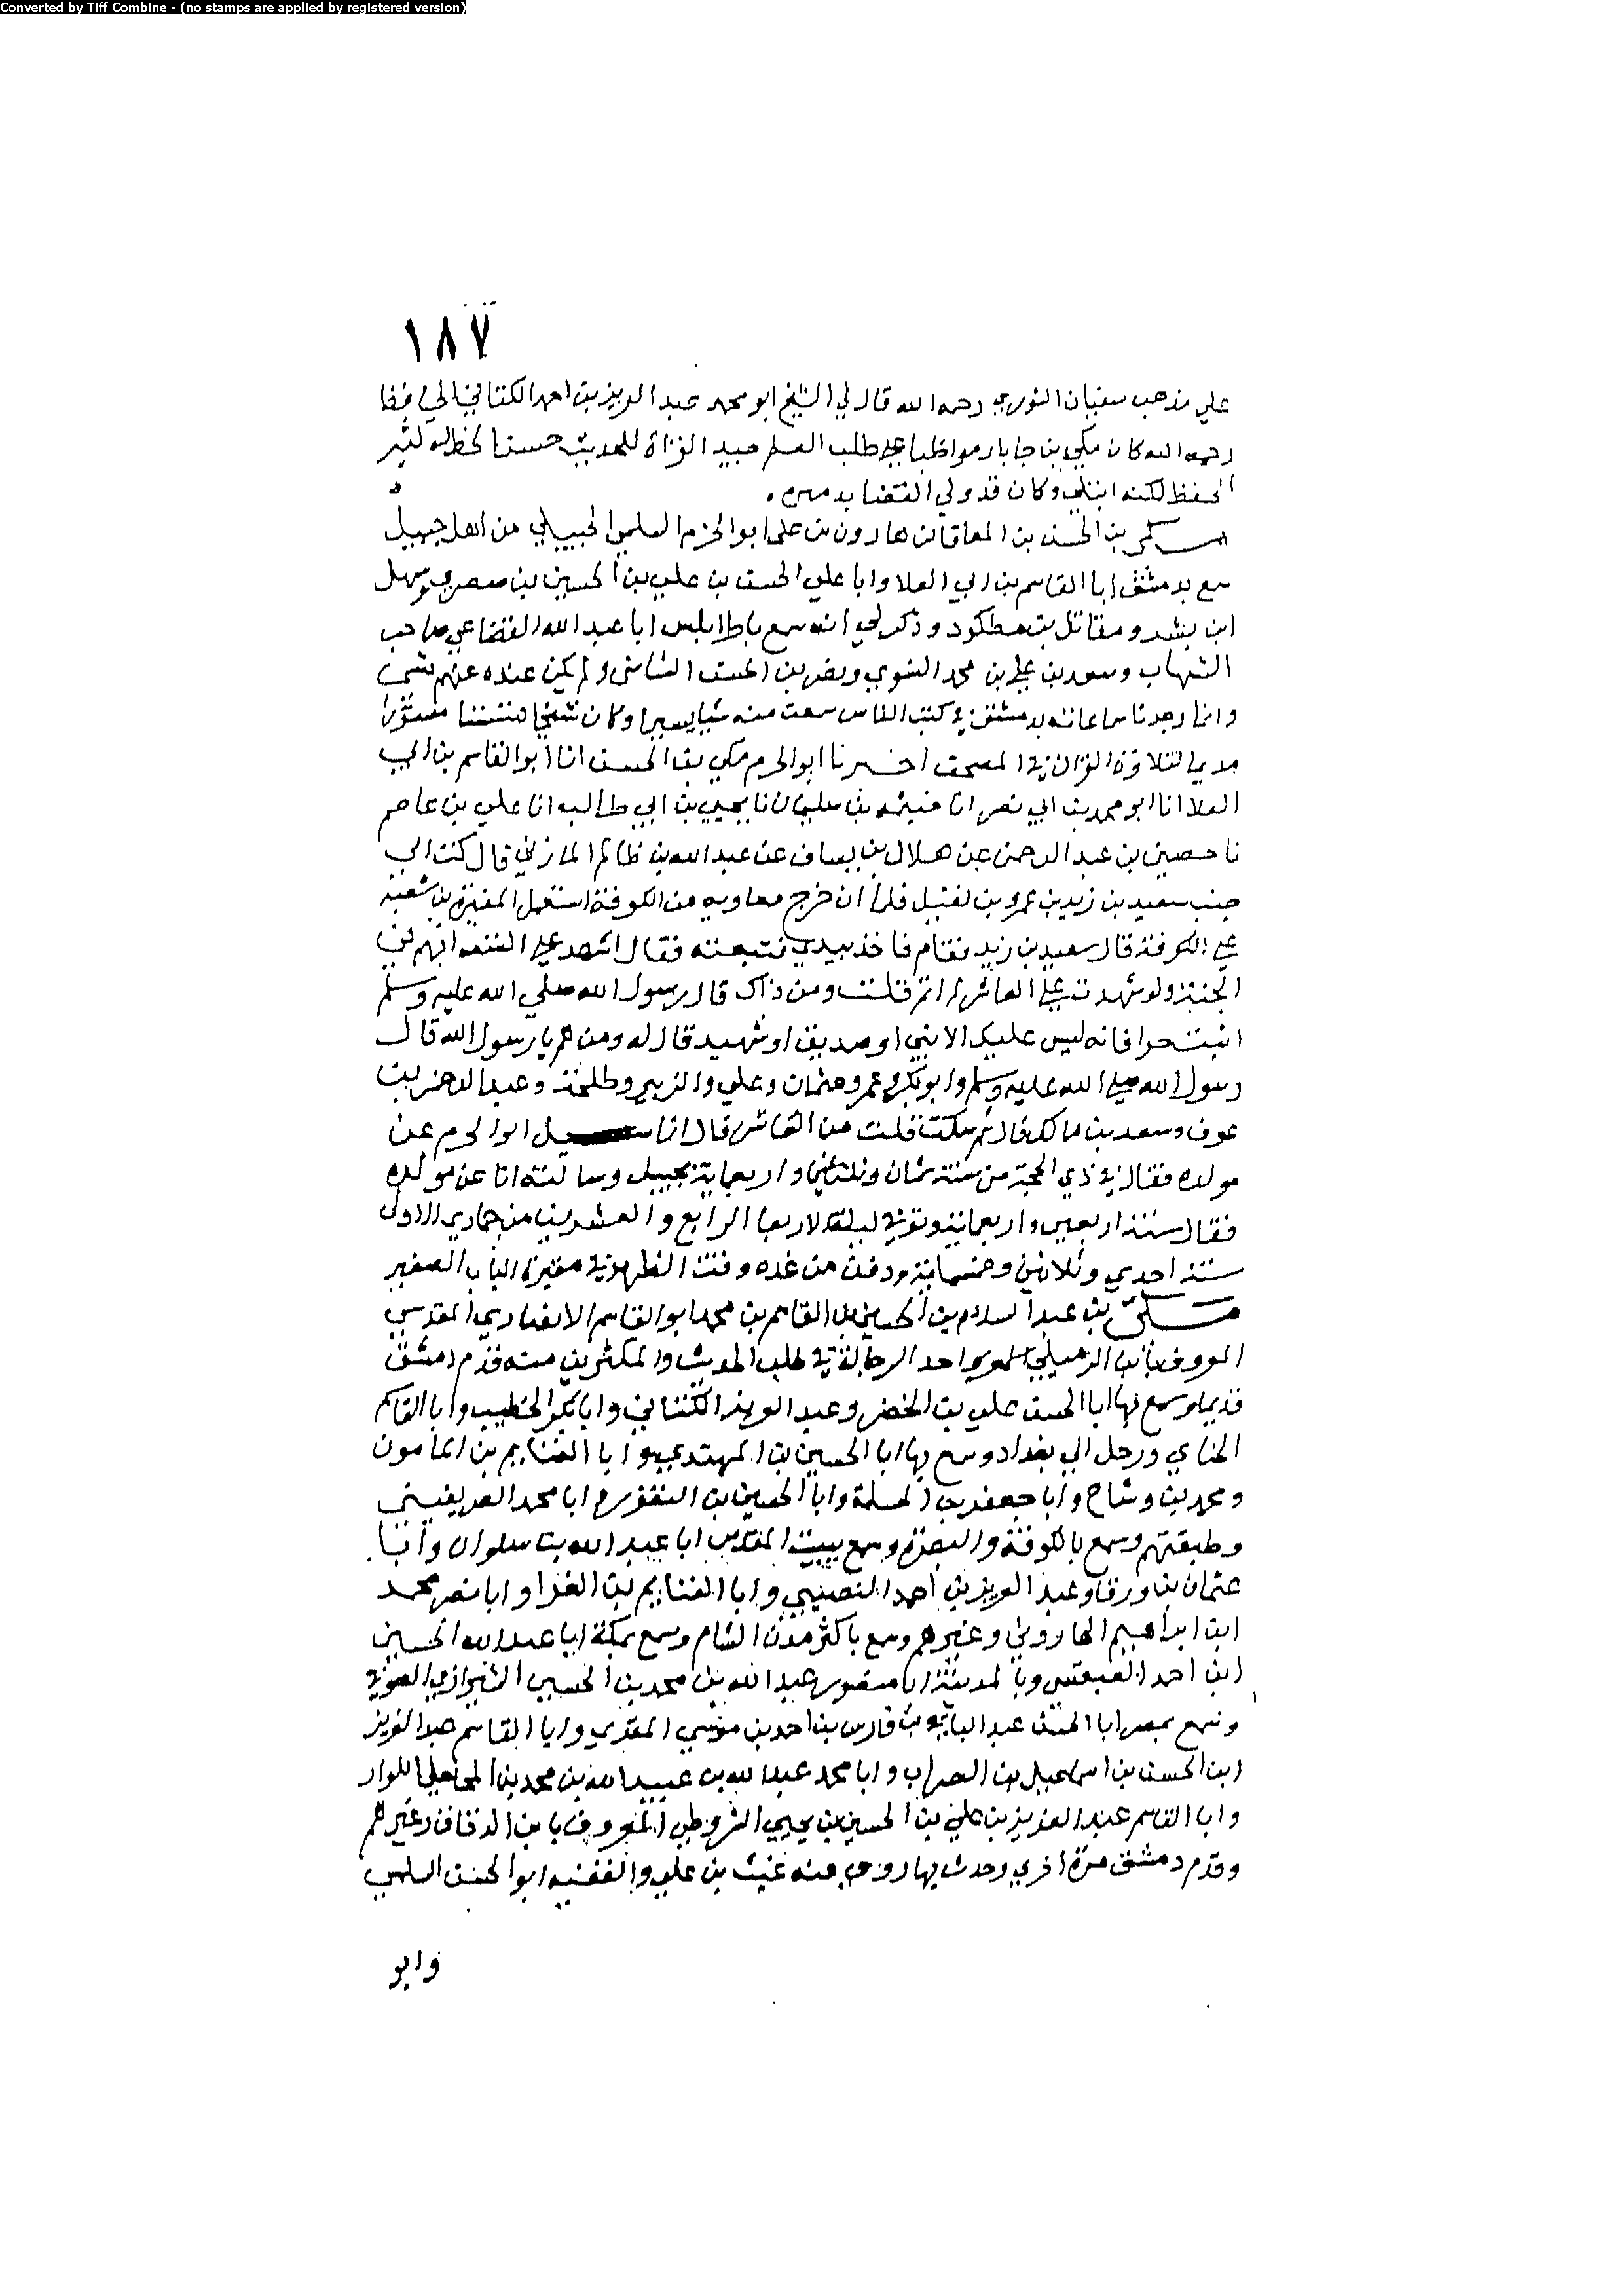 Converted by Tiff Combine - (no stamps are applied by registered version)
١٨٧
علي مذهب سفيان الثوري رحمه الله قال لي الشيخ ابو محمد عبد العزيز بن احمد الكتاني الحافظ
رحمه الله كان مكي بن جابار مواظبا على طلب العلم جيد القراة للحديث حسن الخط كثير
الحفظ لكنه ابتلي وكان قد ولي القضا بدميره
مكي بن الحسن بن المعافا بن هارون بن علي ابو الحرم السلمي الجبيلي من اهل جبيل
سمع بدمشق ابا القاسم بن ابي العلا وابا علي الحسن بن علي بن الحسين بن صصري وسهل
ابن بشر ومقاتل بن مطكود وذكر لي انه سمع باطرابلس ابا عبد الله القضاعي صاحب
الشهاب وسعد بن علي بن محمد النسوي ونصر بن الحسن الشاشي ولم يكن عنده عنهم شي
وانما وجدنا سماعاته بدمشق في كتب الناس سمعت منه شيا يسيرا وكان شيخا مستورا
مديما لتلاوة القران في المصحف اخبرنا ابو الحرم مكي بن الحسن انا ابو القاسم بن ابي
العلا انا ابو محمد بن ابي نصر انا خيثمه بن سليمان نا يحيي بن ابي طالب انا علي بن عاصم
نا حصين بن عبد الرحمن عن هلال بن يساف عن عبد الله بن ظالم المازني قال كنت الي
جنب سعيد بن زيد بن عمرو بن نفيل فلما ان خرج معاويه من الكوفة استعمل المغيرة بن شعبة
علي الكوفة قال سعيد بن زيد فقام فاخذ بيدي فتبعته فقال اشهد علي التسعه انهم في
الجنة ولو شهدت علي العاشر لم اثم فقلت ومن ذاك قال رسول الله صلي الله عليه وسلم
اثبت حرا فانه ليس عليك الا نبي او صديق او شهيد قال له ومن هم يا رسول الله قال
رسول الله صلي الله عليه وسلم وابو بكر وعمر وعثمان وعلي والزبير وطلحة وعبد الرحمن بن
عوف وسعد بن مالك قال ثم سكت فقلت من العاشر قال انا سيل ابو الحرم عن
مولده فقال في ذي الحجة من سنة ثمان وثلثاني واربعماية بجبيل وسالته انا عن مولده
فقال سنة اربعين واربعماية وتوفي ليلة الاربعا الرابع والعشرين من جمادي الاول
سنة احدي وثلاثين وخمسماية ودفن من غده وقت الظهر في مقبرة الباب الصغير
مكي بن عبد السلام بن الحسين بن القاسم بن محمد ابو القاسم الانصاري المقدسي
المعروف بابن الرميلي احد الرحالة في طلب الحديث والمكثرين منه قدم دمشق
قديما وسمع بها ابا الحسن علي بن الخضر وعبد العزيز الكتاني وابا بكر الخطيب وابا القاسم
الحناي ورحل الي بغداد وسمع بها ابا الحسين بن المهتدي وابا الغنايم بن المامون
ومحمد بن وشاح وابا جعفر بن المسلمة وابا الحسين بن النقور وابا محمد الصريفيني
وطبقتهم وسمع بالكوفة والبصرة وسمع ببيت المقدس ابا عبد الله بن سلوان وابا
عثمان بن ورقا وعبد العزيز بن احمد النصيبي وابا الغنايم بن الفرا وابا نصر محمد
ابن ابراهيم الهاروني وغيرهم وسمع باكثر مدن الشام وسمع بمكة ابا عبد الله الحسين
ابن احمد وبالمدينة ابا منصور عبد الله بن محمد بن الحسين الشيرازي الصوفي
وسمع بمصر ابا الحسن عبد الباقي بن فارس بن احمد بن موسي المقري وابا القاسم عبد العزيز
ابن الحسن بن اسماعيل بن الضراب وابا محمد عبد الله بن عبيد الله بن محمد بن المحاملي
وابا القاسم عبد العزيز بن علي بن الحسين بن يحيي الشروطي المعروف بابن الدقاق وغيرهم
وقدم دمشق مرة اخري وحدث بها روي عنه غيث بن علي والفقيه ابو الحسن السلمي
وابو